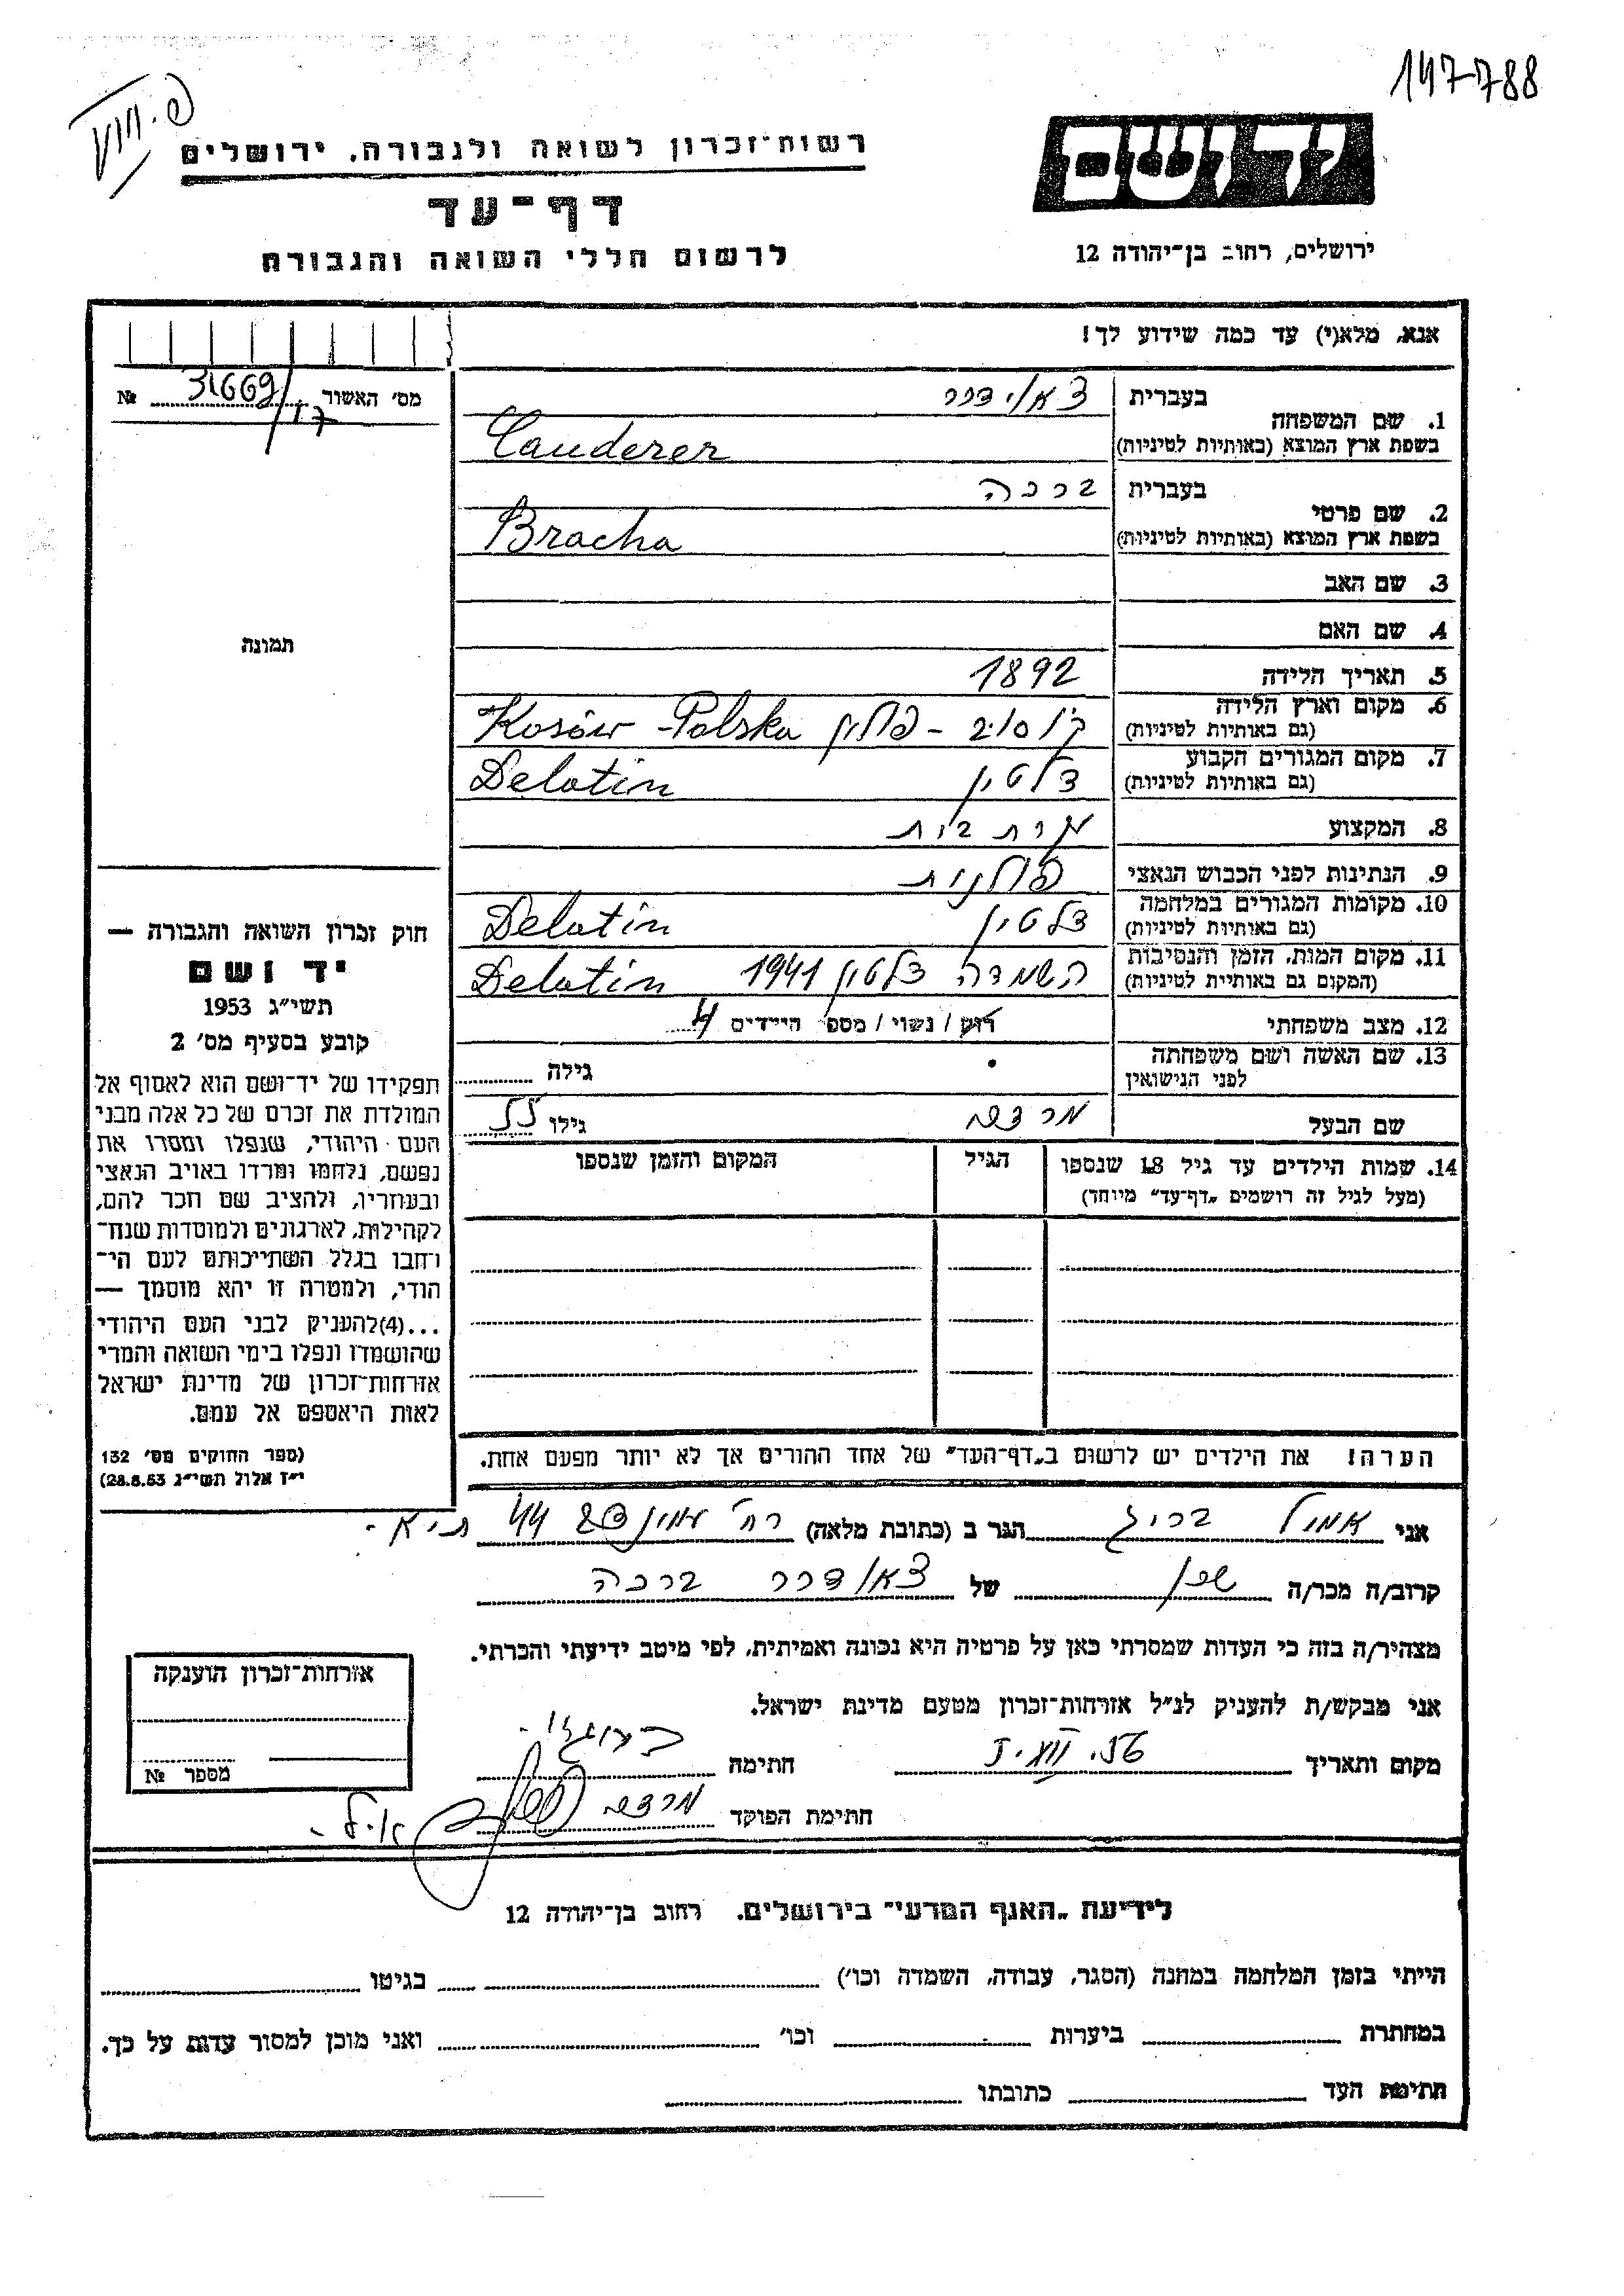 147788
יד ושם
ירושלים, רחוב בן־יהודה 12
רשות־זכרון לשואה ולגבורה, ירושלים
דף־עד
לרשום חללי השואה והגבורה
אנא, מלא(י) עד כמה שידוע לך!
מס׳ האשור 31669/17 №
1. שם המשפחה
בעברית צאודרר
בשפת ארץ המוצא (באותיות לטיניות) Cauderer
2. שם פרטי
בעברית ברכה
בשפת ארץ המוצא (באותיות לטיניות) Bracha
3. שם האב
4. שם האם
5. תאריך הלידה 1892
6. מקום וארץ הלידה
(גם באותיות לטיניות) קוסוב – פולין Kosów – Polska
7. מקום המגורים הקבוע
(גם באותיות לטיניות) דלטין Delatin
8. המקצוע עקרת בית
9. הנתינות לפני הכבוש הנאצי פולנית
10. מקומות המגורים במלחמה
(גם באותיות לטיניות) דלטין Delatin
11. מקום המות, הזמן והנסיבות
(המקום גם באותיות לטיניות) השמדה דלטין 1941 Delatin
12. מצב משפחתי רוק / נשוי / מספר הילדים 4
13. שם האשה ושם משפחתה
לפני הנישואין גילה
שם הבעל מרדכי גילו 55
14. שמות הילדים עד גיל 18 שנספו
(מעל לגיל זה רושמים „דף־עד” מיוחד)
הגיל
המקום והזמן שנספו
הערה! את הילדים יש לרשום ב„דף־העד” של אחד ההורים אך לא יותר מפעם אחת.
תמונה
חוק זכרון השואה והגבורה —
יד ושם
תשי״ג 1953
קובע בסעיף מס׳ 2
תפקידו של יד־ושם הוא לאסוף אל
המולדת את זכרם של כל אלה מבני
העם היהודי, שנפלו ומסרו את
נפשם, נלחמו ומרדו באויב הנאצי
ובעוזריו, ולהציב שם וזכר להם,
לקהילות, לארגונים ולמוסדות שנח־
רבו בגלל השתייכותם לעם הי־
הודי, ולמטרה זו יהא מוסמך —
...(4) להעניק לבני העם היהודי
שהושמדו ונפלו בימי השואה והמרי
אזרחות־זכרון של מדינת ישראל
לאות היאספם אל עמם.
(ספר החוקים מס׳ 132
י״ז אלול תשי״ג 28.8.53)
אני אמיל הגר ב (כתובת מלאה) רח׳ 44 ת״א -
קרוב/ה מכר/ה שכן של צאודרר ברכה
מצהיר/ה בזה כי העדות שמסרתי כאן על פרטיה היא נכונה ואמיתית, לפי מיטב ידיעתי והכרתי.
אני מבקש/ת להעניק לנ״ל אזרחות־זכרון מטעם מדינת ישראל.
מקום ותאריך חתימה
חתימת הפוקד מרדכי
אזרחות־זכרון הוענקה
מספר №
לידיעת „האגף המדעי” בירושלים, רחוב בן־יהודה 12
הייתי בזמן המלחמה במחנה (הסגר, עבודה, השמדה וכו׳) בגיטו
במחתרת ביערות וכו׳ ואני מוכן למסור עדות על כך.
חתימת העד כתובתו